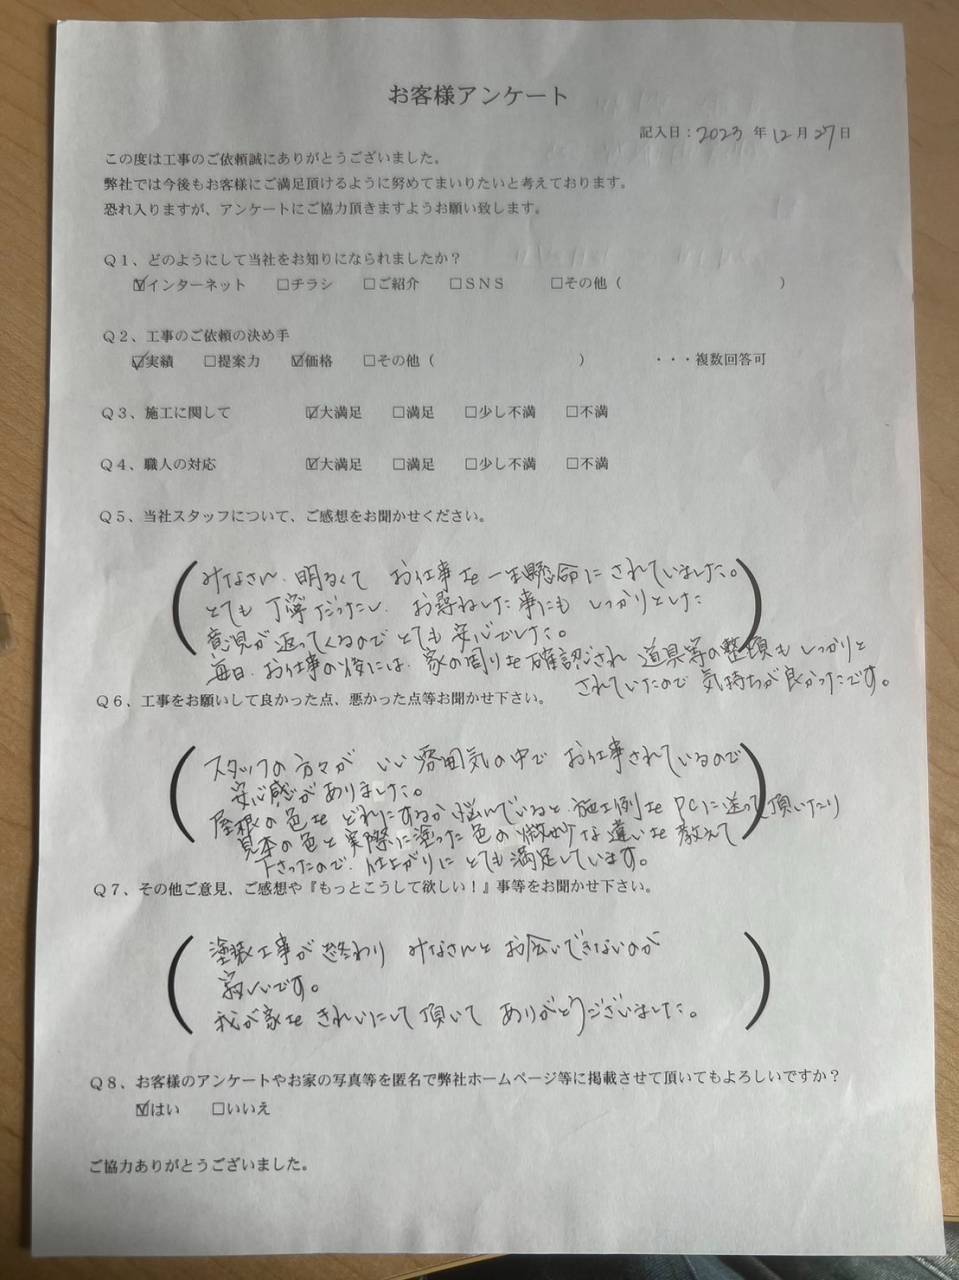 お客様アンケート
記入日：2023 年 12 月 27 日
この度は工事のご依頼誠にありがとうございました。
弊社では今後もお客様にご満足頂けるように努めてまいりたいと考えております。
恐れ入りますが、アンケートにご協力頂きますようお願い致します。
Ｑ１、どのようにして当社をお知りになられましたか？
☑インターネット　□チラシ　□ご紹介　□ＳＮＳ　□その他（　　　）
Ｑ２、工事のご依頼の決め手
☑実績　□提案力　☑価格　□その他（　　　）　・・・複数回答可
Ｑ３、施工に関して　☑大満足　□満足　□少し不満　□不満
Ｑ４、職人の対応　☑大満足　□満足　□少し不満　□不満
Ｑ５、当社スタッフについて、ご感想をお聞かせください。
みなさん、明るくて お仕事を一生懸命にされていました。
とても丁寧だったし、お尋ねした事にも しっかりとした
意見が返ってくるので とても安心でした。
毎日、お仕事の後には、家の周りを確認され 道具等の整頓も しっかりと
されていたので 気持ちが良かったです。
Ｑ６、工事をお願いして良かった点、悪かった点等お聞かせ下さい。
スタッフの方々が いい雰囲気の中で お仕事されているので
安心感がありました。
屋根の色を どれにするか悩んでいると 施工例を PCに送って頂いたり
見本の色と実際に塗った色の微妙な違いを教えて
下さったので、仕上がりに とても満足しています。
Ｑ７、その他ご意見、ご感想や『もっとこうして欲しい！』事等をお聞かせ下さい。
塗装工事が終わり みなさんと お会いできないのが
寂しいです。
我が家を きれいにして頂いて ありがとうございました。
Ｑ８、お客様のアンケートやお家の写真等を匿名で弊社ホームページ等に掲載させて頂いてもよろしいですか？
☑はい　□いいえ
ご協力ありがとうございました。